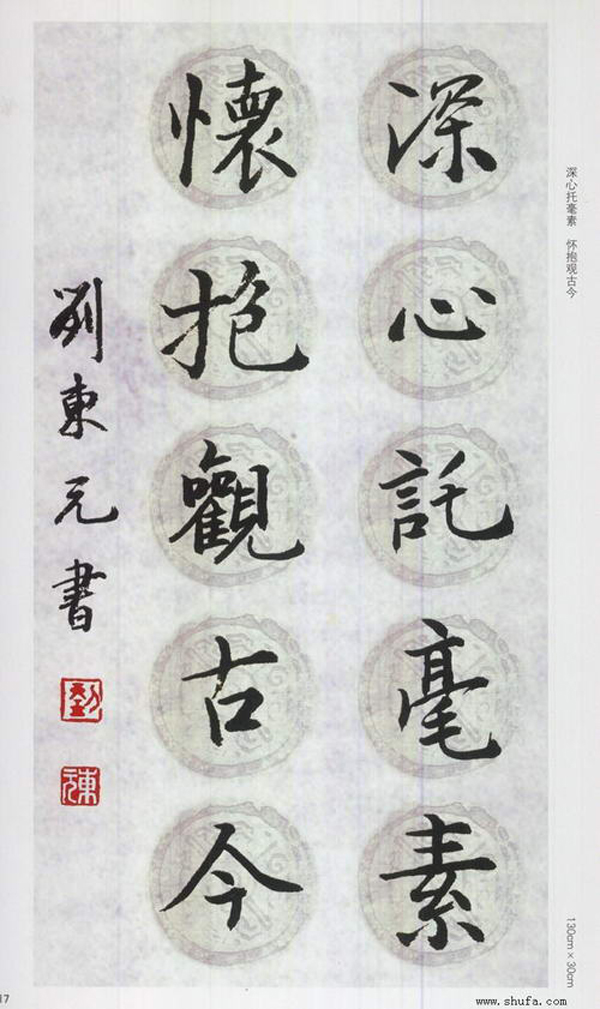 深心託毫素
懷抱觀古今
劉東元書
劉
東元
深心托毫素 怀抱观古今
130cm×30cm
17
www.shufa.com